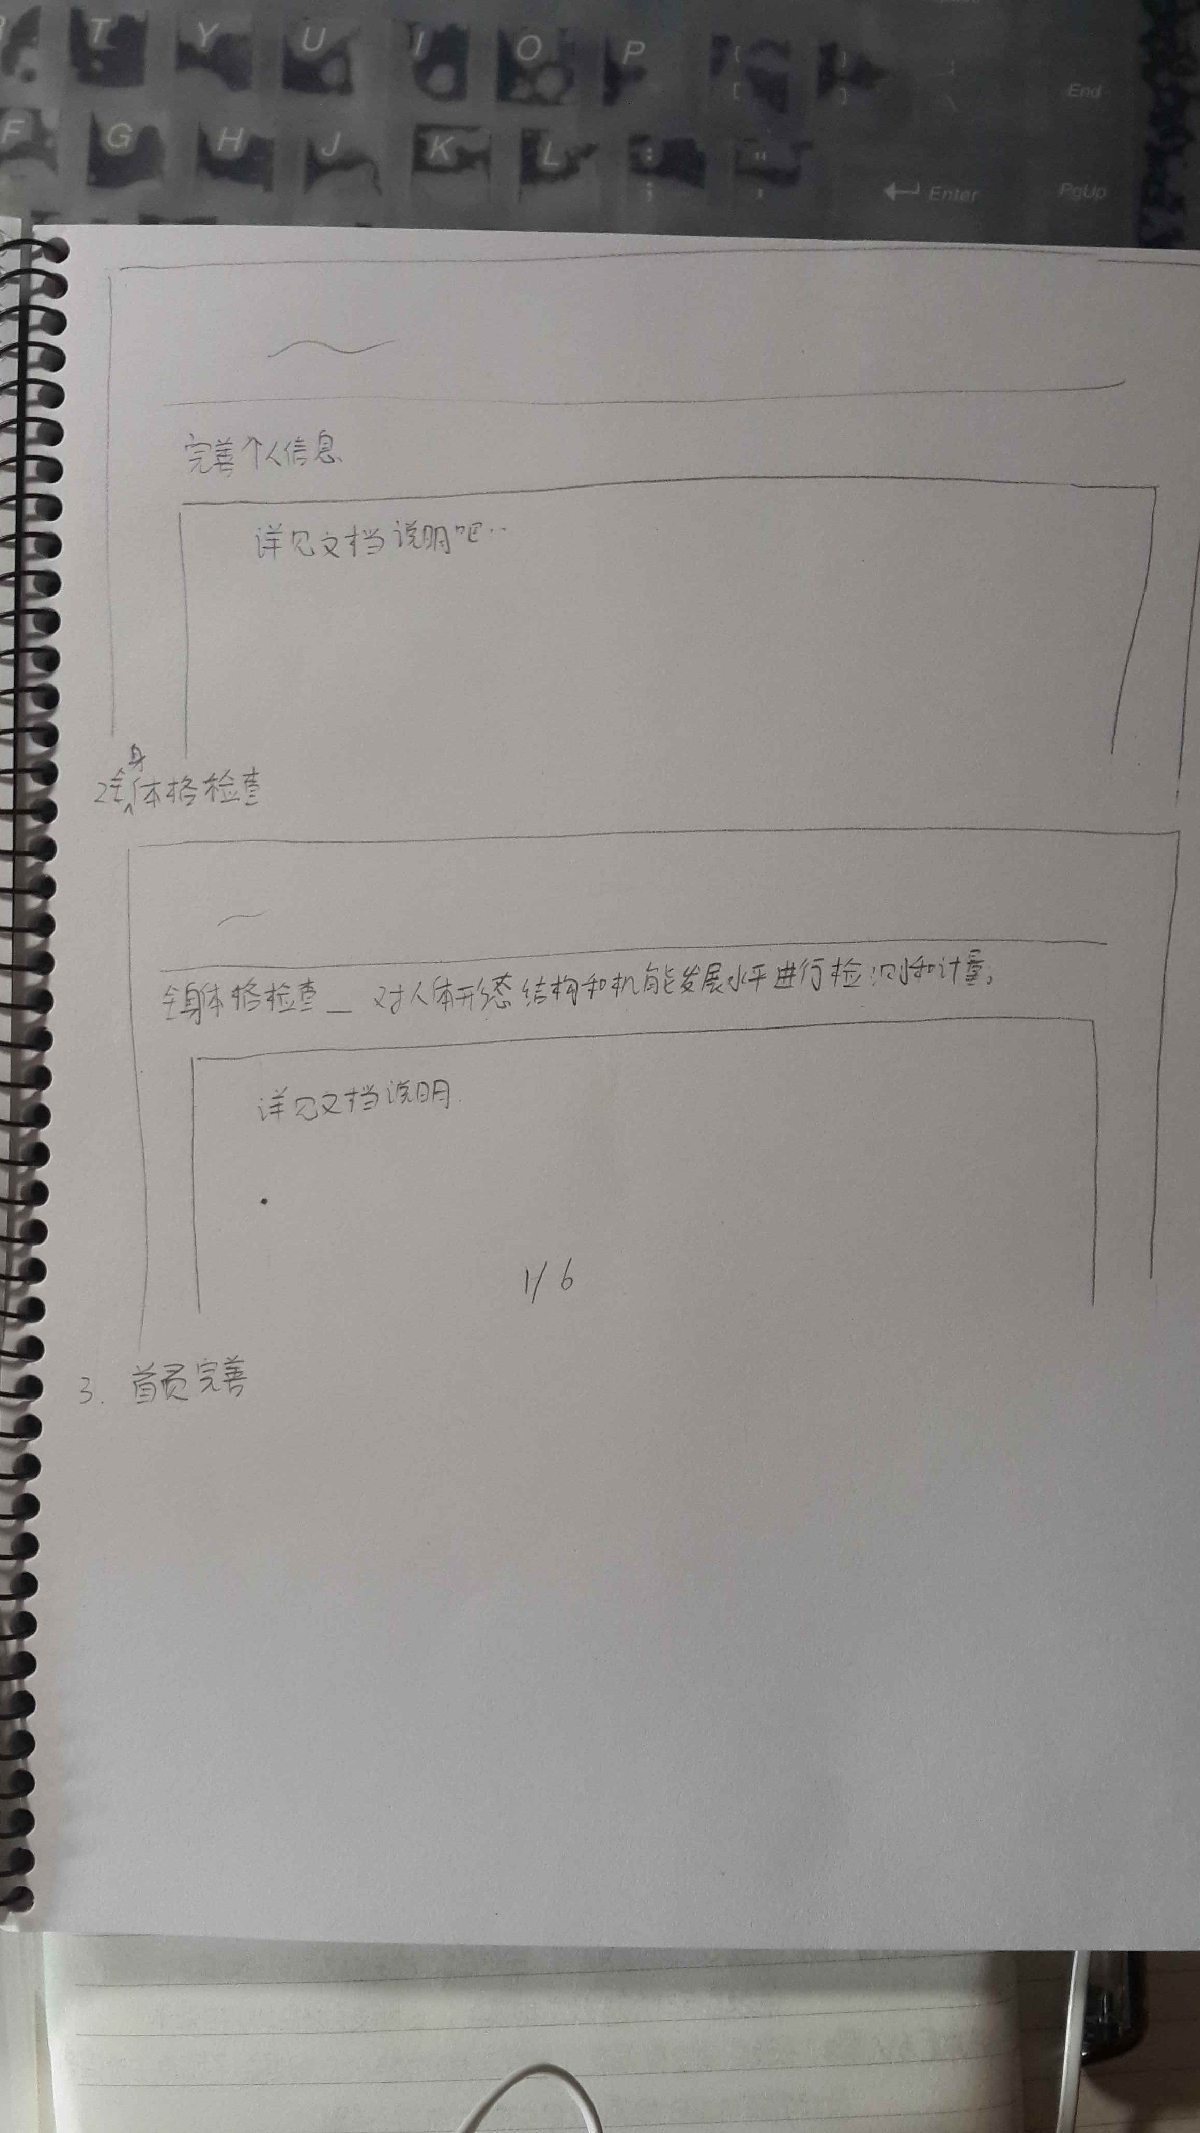 T Y U I O P { [ } ] | \ End
F G H J K L : ; " ' Enter PgUp
完善个人信息
详见文档说明吧..
2 全身体格检查
全身体格检查 — 对人体形态结构和机能发展水平进行检测和计量。
详见文档说明.
1/6
3. 首页完善